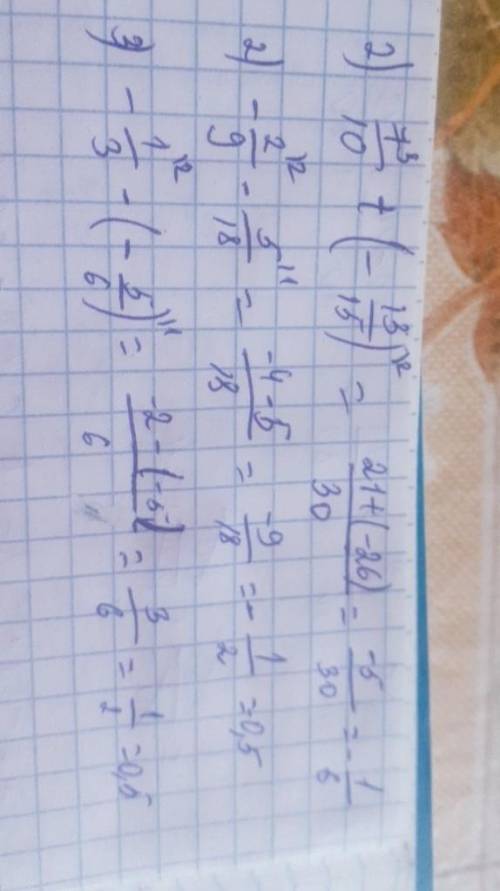 2) 7/10 ³ + (- 13/15)^12 = 21+(-26)/30 = -5/30 = - 1/6
2) - 2/9 ^12 - 5/18 ^11 = -4-5/18 = -9/18 = - 1/2 = 0,5
3) - 1/3 ^12 - (- 5/6)^11 = -2-(-5)/6 = 3/6 = 1/2 = 0,5